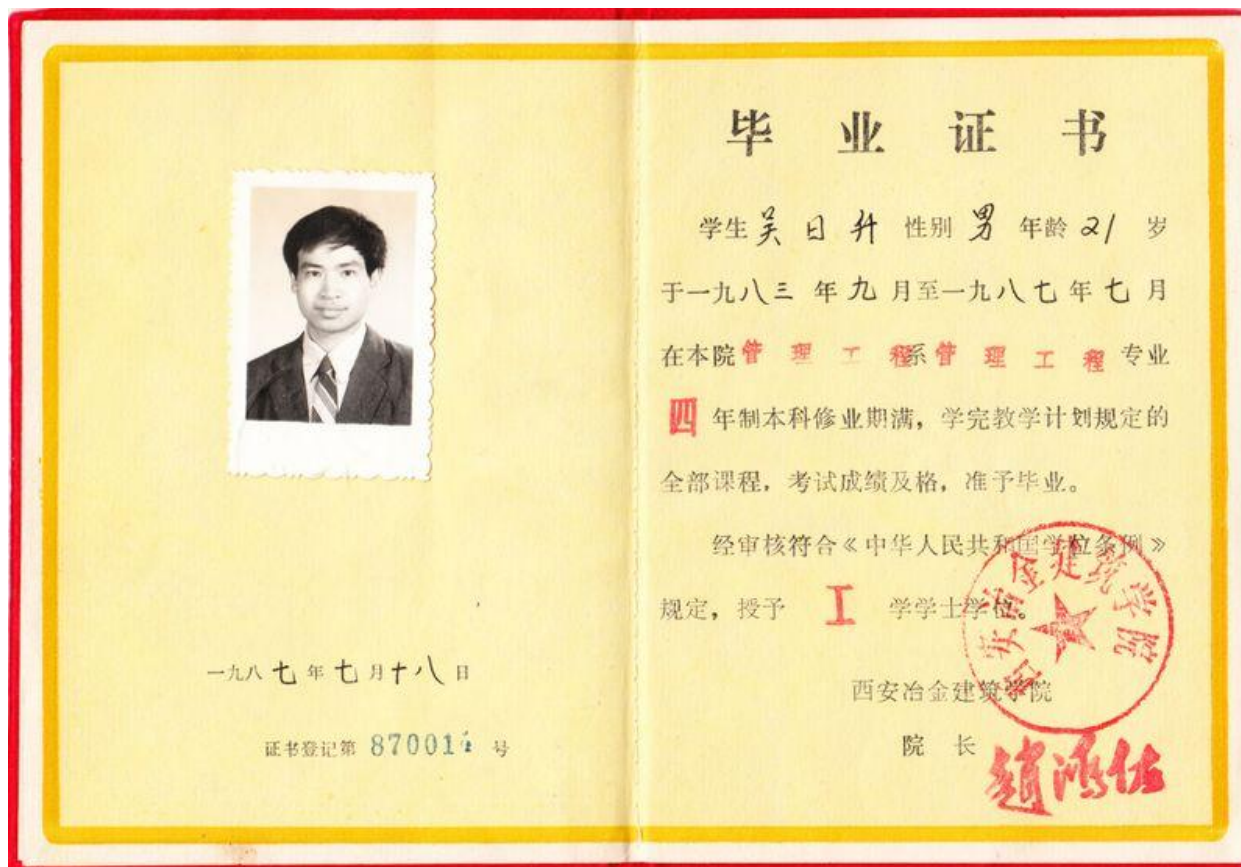 一九八七年七月十八日
证书登记第 870014 号
毕业证书
学生吴日升性别男年龄21岁
于一九八三年九月至一九八七年七月
在本院管理工程系管理工程专业
四年制本科修业期满，学完教学计划规定的
全部课程，考试成绩及格，准予毕业。
经审核符合《中华人民共和国学位条例》
规定，授予工学学士学位。
西安冶金建筑学院
西安冶金建筑学院
院长
趙鴻佐